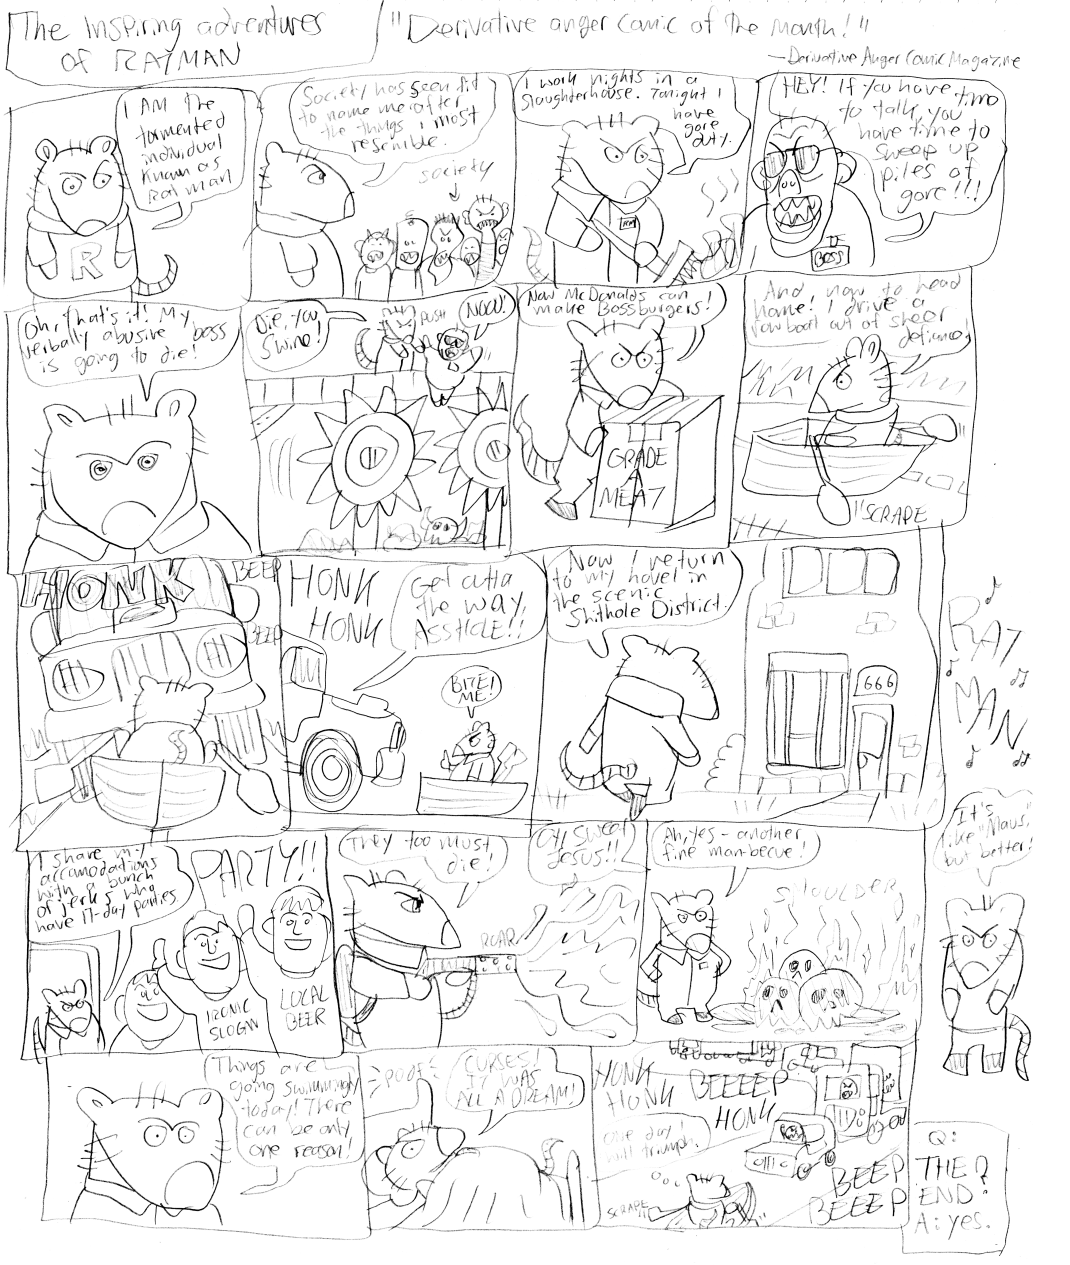 The Inspiring adventures
of RATMAN
"Derivative anger comic of the month!"
—Derivative Anger Comic Magazine
I AM the
tormented
individual
known as
Rat man
R
Society has seen fit
to name me after
the things I most
resemble.
society
I work nights in a
Slaughterhouse. Tonight I
have
gore
duty.
RM
HEY! If you have time
to talk, you
have time to
sweep up
piles of
gore!!!
BOSS
Oh, that's it! My
verbally abusive boss
is going to die!
Die, you
Swine!
PUSH
NOOO!
Now McDonalds can
make Bossburgers!
GRADE
A
MEAT
And now to head
home! I drive a
rowboat out of sheer
defiance!
SCRAPE
HONK
BEEP
BEEP
HONK
HONK
Get outta
the way,
ASSHOLE!!
BITE
ME!
Now I return
to my hovel in
the scenic
Shithole District.
666
RAT
MAN
I share my
accomodations
with a bunch
of jerks who
have 17-day parties.
PARTY!!
IRONIC
SLOGAN
LOCAL
BEER
They too must
die!
Oh sweet
Jesus!!
ROAR!
Ah, yes - another
fine man-becue!
SMOULDER
It's
like "Maus,"
but better!
Things are
going swimmingly
today! There
can be only
one reason!
POOF
CURSES!
IT WAS
ALL A DREAM!
HONK
HONK
BEEEEP
HONK
one day I
will triumph.
SCRAPE
BEEP
BEEEP
Q:
THE
END?
A: yes.